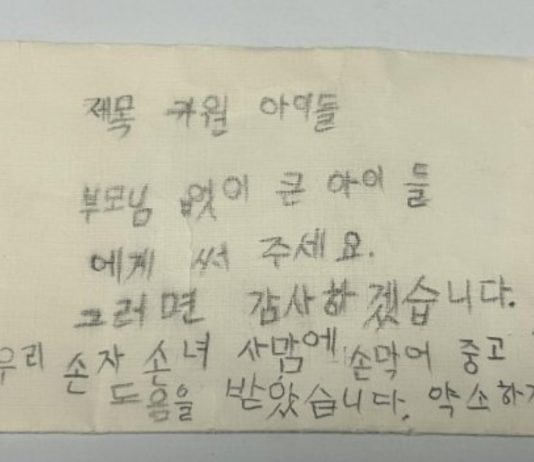 제목 커월 아이들
부모님 없이 큰 아이 들
에게 써 주세요.
그러면 감사하겠습니다.
우리 손자 손녀 사맘에 손막어 중고
도움을 받았습니다. 약소하지